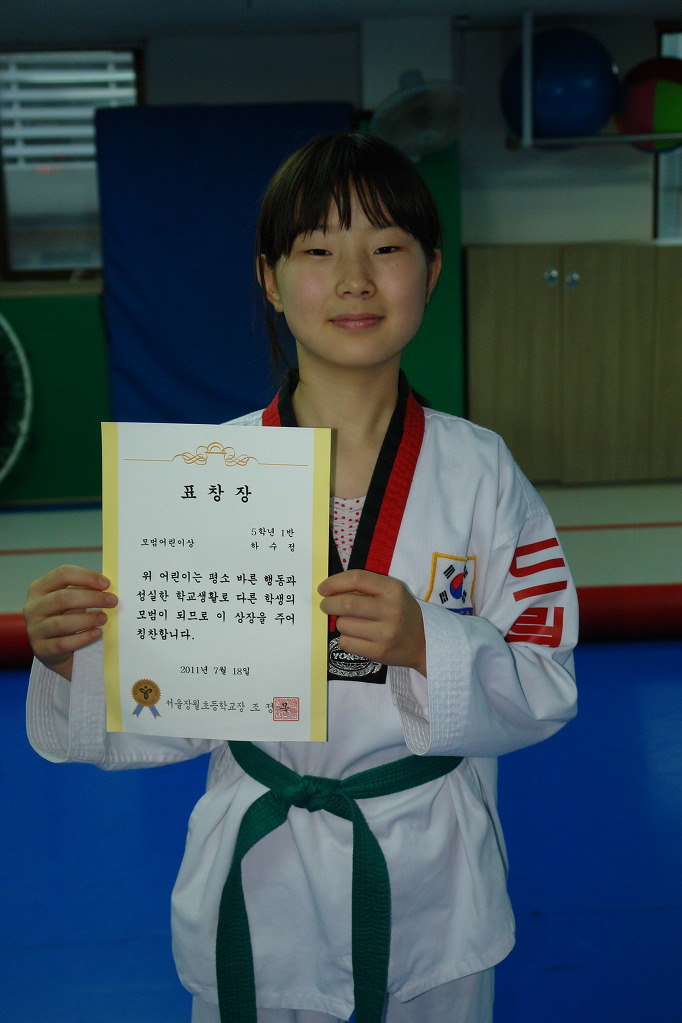 표창장
5학년 1반
모범어린이상
하수정
위 어린이는 평소 바른 행동과
성실한 학교생활로 다른 학생의
모범이 되므로 이 상장을 주어
칭찬합니다.
2011년 7월 18일
서울장월초등학교장 조 정
드림
YONSEI